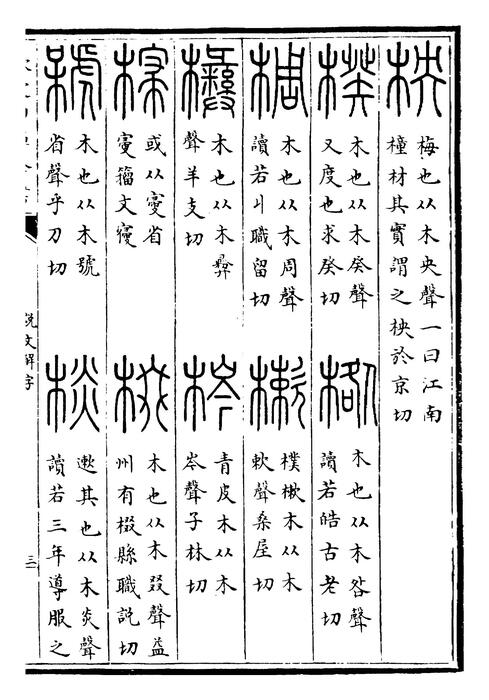 柍
梅也从木央聲一曰江南
橦材其實謂之柍於京切
楑
木也从木癸聲
又度也求癸切
木也从木咎聲
讀若皓古老切
椆
木也从木周聲
讀若丩職留切
樕
樸樕木从木
欶聲桑屋切
木也从木彝
聲羊支切
梣
青皮木从木
岑聲子林切
或从省
籀文
棳
木也从木叕聲益
州有棳縣職説切
木也从木號
省聲乎刀切
棪
遬其也从木炎聲
讀若三年導服之
説文解字
三